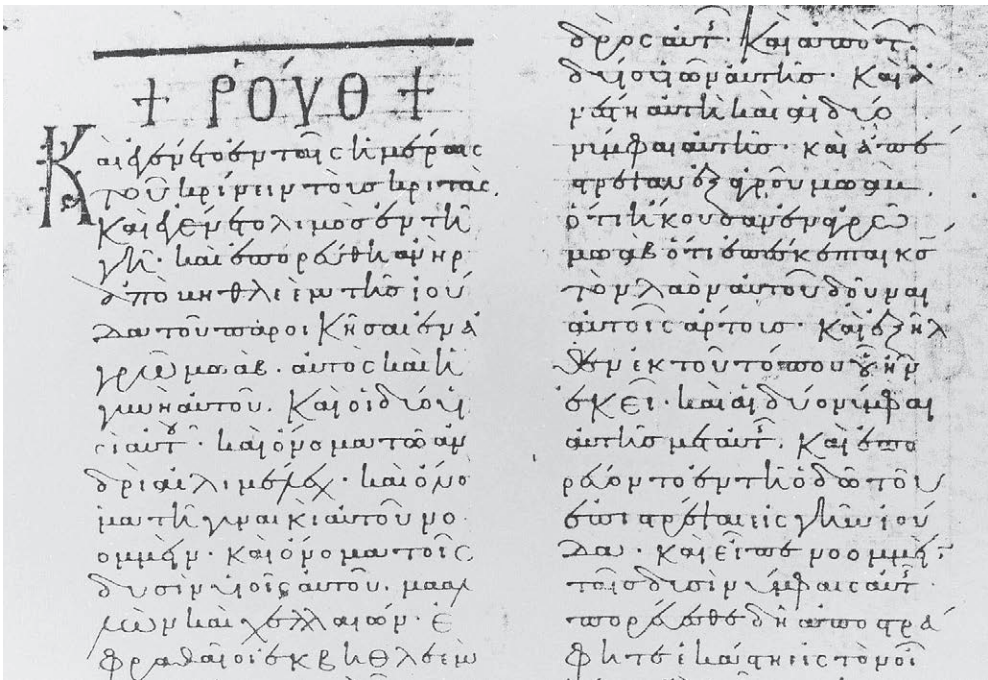 + ΡΟΎΘ +
Καὶ ἐγένετο ἐν ταῖς ἡμέραις
τοῦ κρίνειν τοὺς κριτὰς.
Καὶ ἐγένετο λιμὸς ἐν τῆ
γῆ· καὶ ἐπορεύθη ἀνὴρ
ἀπὸ βηθλεὲμ τῆς ἰού
δα τοῦ παροικῆσαι ἐν ἀ
γρῶ μωάβ. αὐτὸς καὶ ἡ
γυνὴ αὐτοῦ. Καὶ οἱ δύο υἱ
οὶ αὐτοῦ· καὶ ὄνομα τῶ ἀν
δρὶ αἰλιμέλεχ· καὶ ὄνο
μα τῆ γυναικὶ αὐτοῦ νο
ομμεὶν· καὶ ὄνομα τοῖς
δυσὶν υἱοῖς αὐτοῦ. μααλ
λὼν καὶ χελλαιών· ἐ
φραθαῖοι ἐκ βηθλεὲμ
δρὸς αὐτῆς· Καὶ ἀπὸ τῶν
δύο υἱῶν αὐτῆς. Καὶ ἀ
νέστη αὐτὴ καὶ αἱ δύο
νύμφαι αὐτῆς· καὶ ἀπέ
στρεψαν ἐξ ἀγροῦ μωάβ.
ὅτι ἤκουσαν ἐν ἀγρῶ
μωαβ ὅτι ἐπέσκεπται κς
τὸν λαὸν αὐτοῦ δοῦναι
αὐτοῖς ἄρτους· Καὶ ἐξῆλ
θεν ἐκ τοῦ τόπου οὗ ἦν
ἐκεῖ· καὶ αἱ δύο νύμφαι
αὐτῆς μετ αὐτῆς. Καὶ ἐπο
ρεύοντο ἐν τῆ ὁδῶ τοῦ
ἐπιστρέψαι εἰς γῆν ἰού
δα· Καὶ εἶπε νοομμεὶν
ταῖς δυσὶν νύμφαις αὐτῆς·
πορεύεσθε δὴ ἀποστρά
φητε ἑκάστη εἰς τὸν οἶ